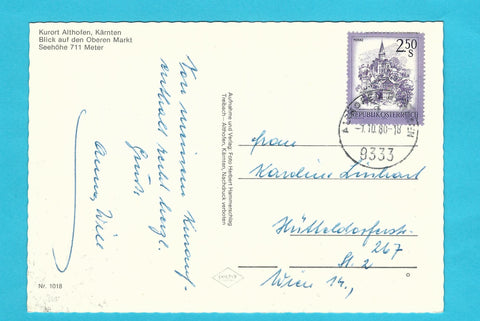 Kurort Althofen, Kärnten
Blick auf den Oberen Markt
Seehöhe 711 Meter
Von unserem Kurauf-
enthalt recht herzl.
Grüße
Anna, Willi
Nr. 1018
Aufnahme und Verlag: Foto Herbert Hammerschlag
Treibach - Althofen, Kärnten, Nachdruck verboten
2.50
S
REPUBLIK ÖSTERREICH
-1.10.80-18
9333
Frau
Karoline Linhart
Hütteldorferstr.
267
St. 2
Wien 14.,